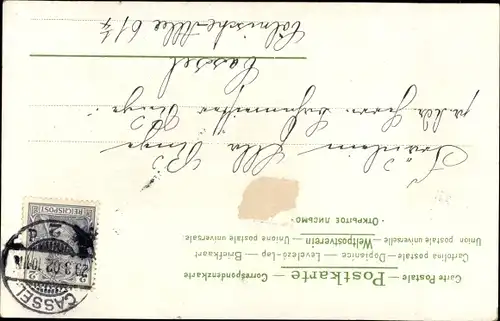 Carte Postale — Postkarte — Correspondenzkarte
Cartolina postale — Dopisnice — Levelező-Lap — Briefkaart
Union postale universelle — Weltpostverein — Unione postale universale
- ОТКРЫТОЕ ПИСЬМО -
Fräulein Ella
Herrn
Cassel
Cölnische-Allee 61¼
REICHSPOST
CASSEL
23.3.02